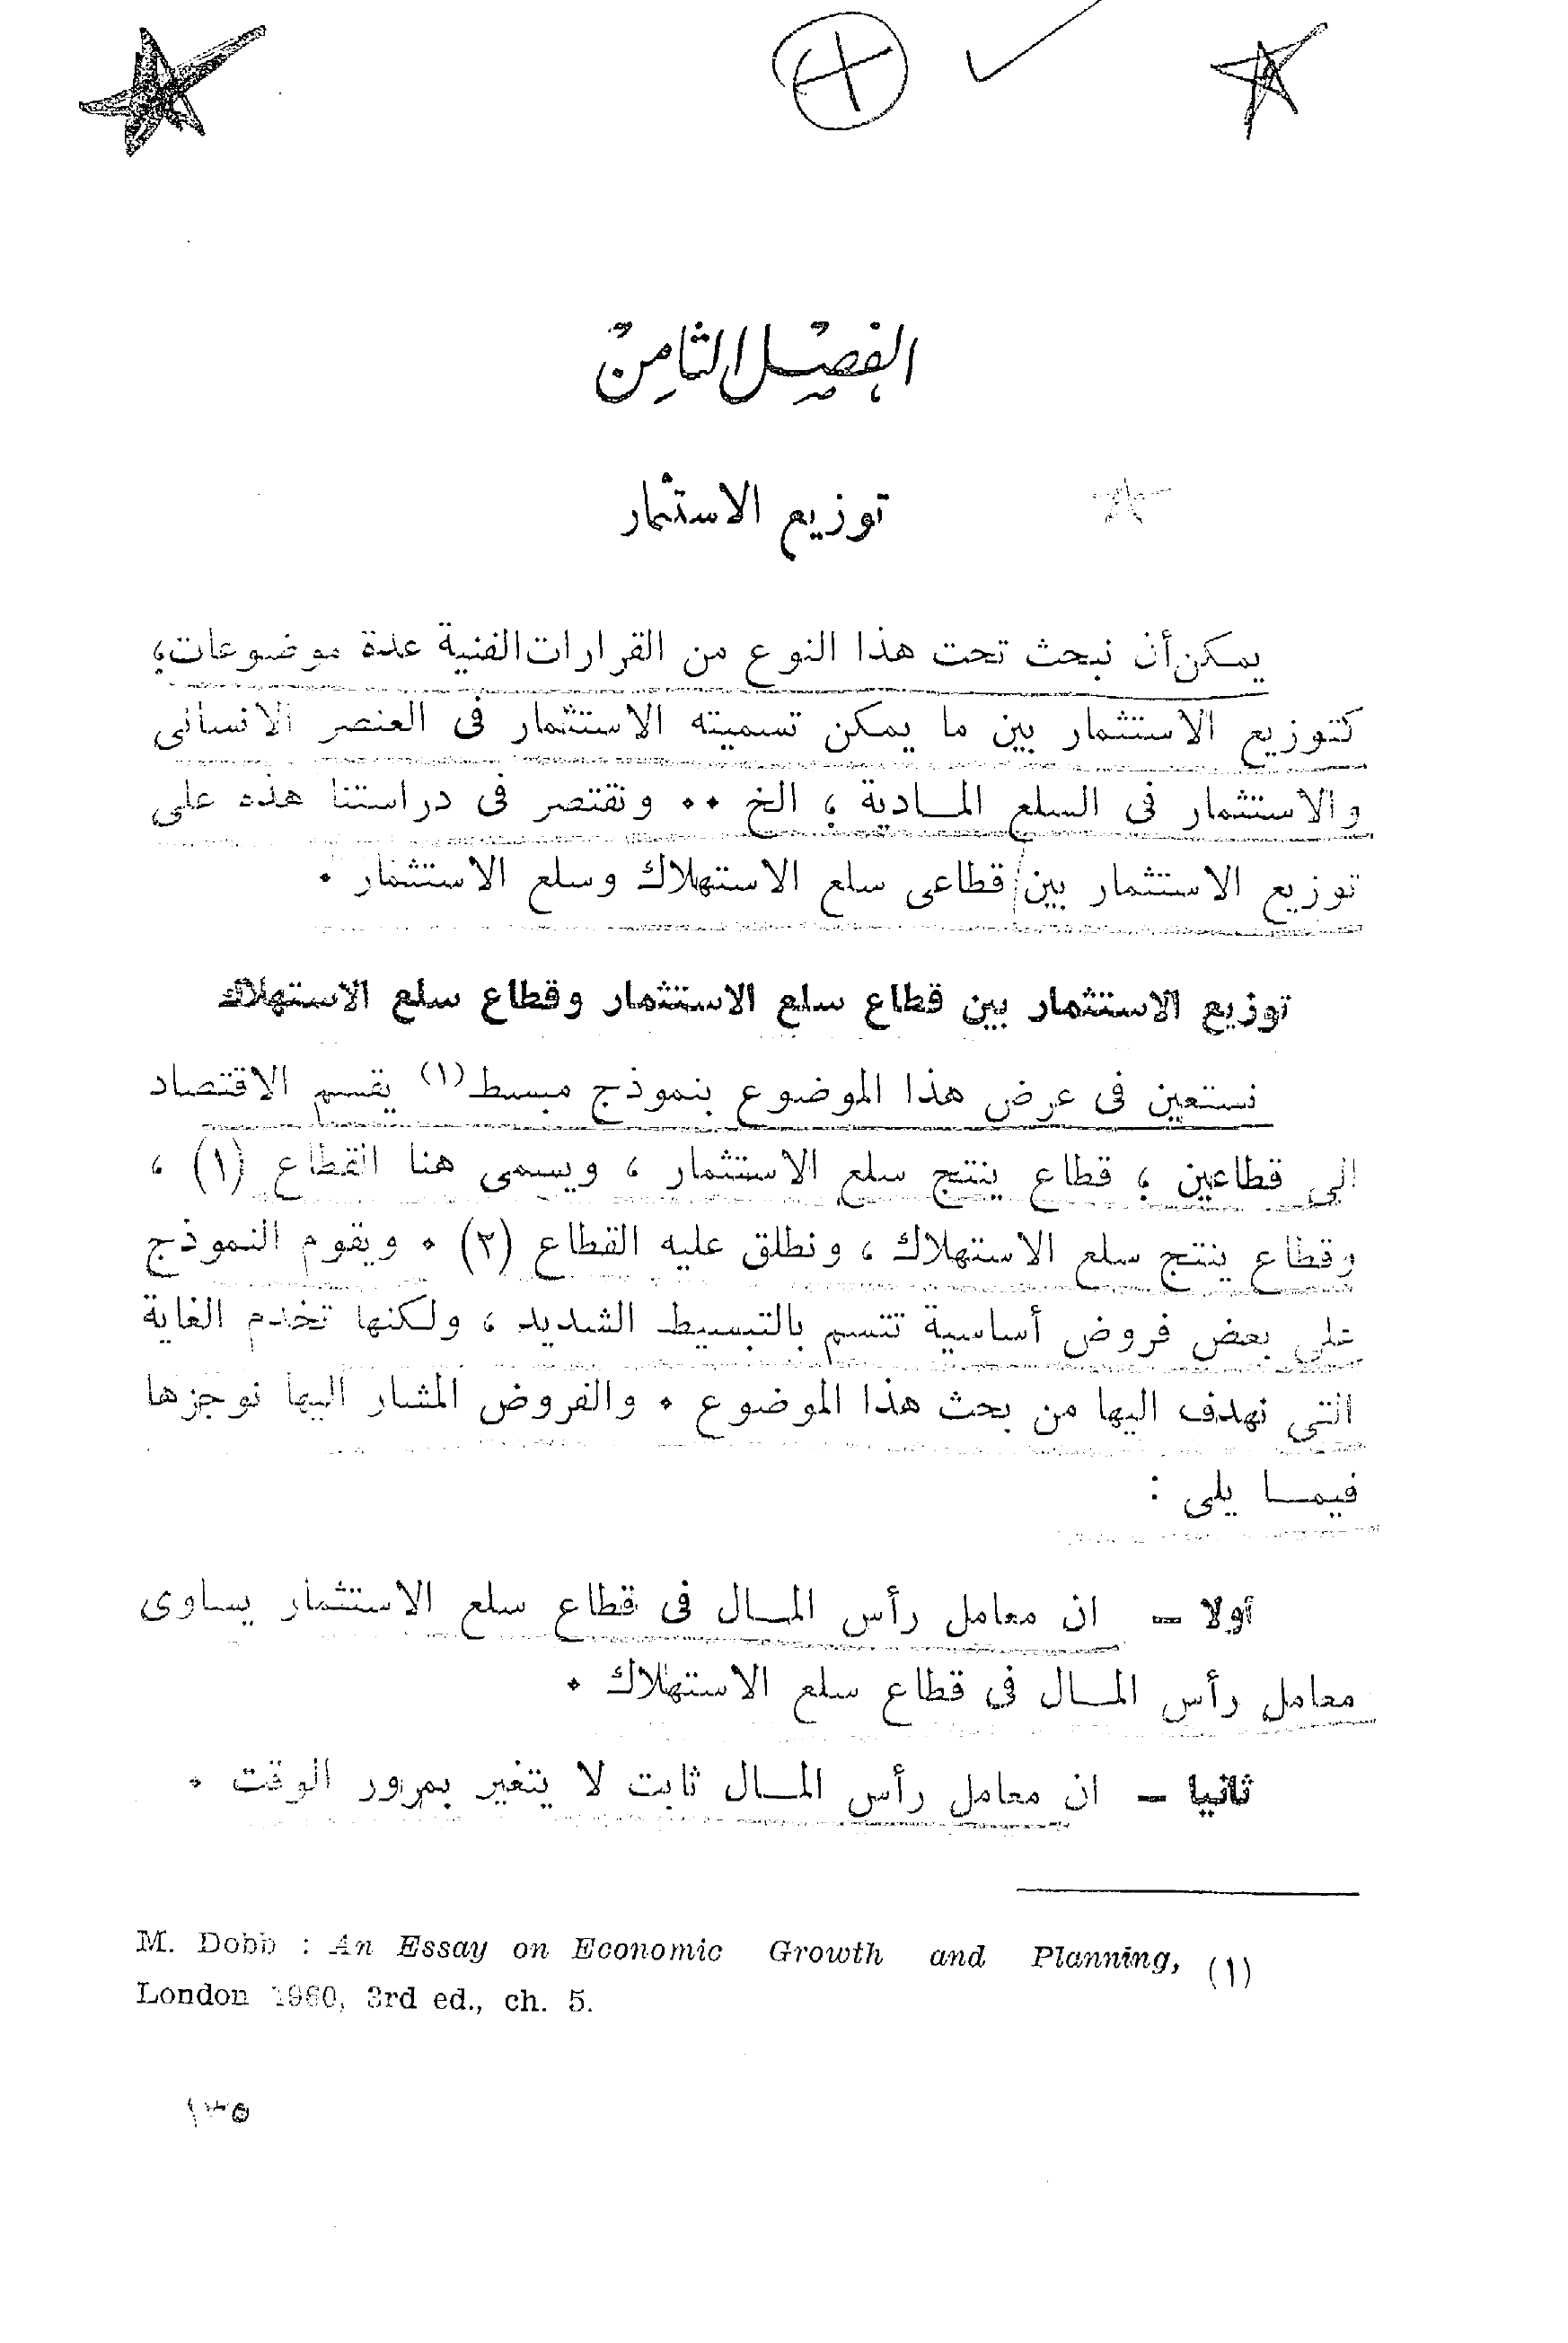 الفصل الثامن
توزيع الاستثمار
يمكن أن نبحث تحت هذا النوع من القرارات الفنية عدة موضوعات،
كتوزيع الاستثمار بين ما يمكن تسميته الاستثمار فى العنصر الانسانى
والاستثمار فى السلع المادية ، الخ ٠٠ ونقتصر فى دراستنا هذه على
توزيع الاستثمار بين قطاعى سلع الاستهلاك وسلع الاستثمار ٠
توزيع الاستثمار بين قطاع سلع الاستثمار وقطاع سلع الاستهلاك
نستعين فى عرض هذا الموضوع بنموذج مبسط(١) يقسم الاقتصاد
الى قطاعين ، قطاع ينتج سلع الاستثمار ، ويسمى هنا القطاع (١) ،
وقطاع ينتج سلع الاستهلاك ، ونطلق عليه القطاع (٢) ٠ ويقوم النموذج
على بعض فروض أساسية تتسم بالتبسيط الشديد ، ولكنها تخدم الغاية
التى نهدف اليها من بحث هذا الموضوع ٠ والفروض المشار اليها نوجزها
فيمــا يلى :
أولا – ان معامل رأس المــال فى قطاع سلع الاستثمار يساوى
معامل رأس المــال فى قطاع سلع الاستهلاك ٠
ثانيا – ان معامل رأس المــال ثابت لا يتغير بمرور الوقت ٠
(١) M. Dobb : An Essay on Economic Growth and Planning,
London 1960, 3rd ed., ch. 5.
١٣٥